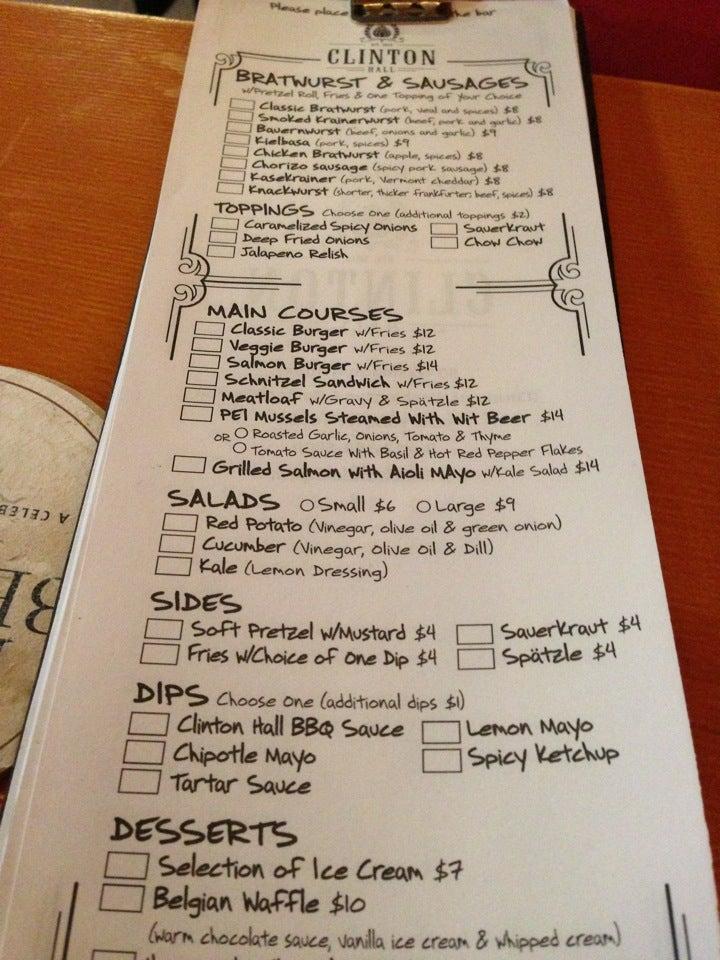 Please place the bar
CLINTON
HALL
BRATWURST & SAUSAGES
w/Pretzel Roll, Fries & One Topping of Your Choice
Classic Bratwurst (pork, veal and spices) $8
Smoked Krainerwurst (beef, pork and garlic) $8
Bauernwurst (beef, onions and garlic) $9
Kielbasa (pork, spices) $9
Chicken Bratwurst (apple, spices) $8
Chorizo sausage (spicy pork sausage) $8
Kasekrainer (pork, Vermont cheddar) $8
Knackwurst (shorter, thicker frankfurter; beef, spices) $8
TOPPINGS Choose One (additional toppings $2)
Caramelized Spicy Onions Sauerkraut
Deep Fried Onions Chow Chow
Jalapeno Relish
MAIN COURSES
Classic Burger w/Fries $12
Veggie Burger w/Fries $12
Salmon Burger w/Fries $14
Schnitzel Sandwich w/Fries $12
Meatloaf w/Gravy & Spätzle $12
PEI Mussels Steamed With Wit Beer $14
OR Roasted Garlic, Onions, Tomato & Thyme
Tomato Sauce With Basil & Hot Red Pepper Flakes
Grilled Salmon with Aioli Mayo w/Kale Salad $14
SALADS Small $6 Large $9
Red Potato (Vinegar, olive oil & green onion)
Cucumber (Vinegar, Olive Oil & Dill)
Kale (Lemon Dressing)
SIDES
Soft Pretzel w/Mustard $4 Sauerkraut $4
Fries w/Choice of One Dip $4 Spätzle $4
DIPS Choose One (additional dips $1)
Clinton Hall BBQ Sauce Lemon Mayo
Chipotle Mayo Spicy Ketchup
Tartar Sauce
DESSERTS
Selection of Ice Cream $7
Belgian Waffle $10
(warm chocolate sauce, vanilla ice cream & whipped cream)
A CELEB
BE